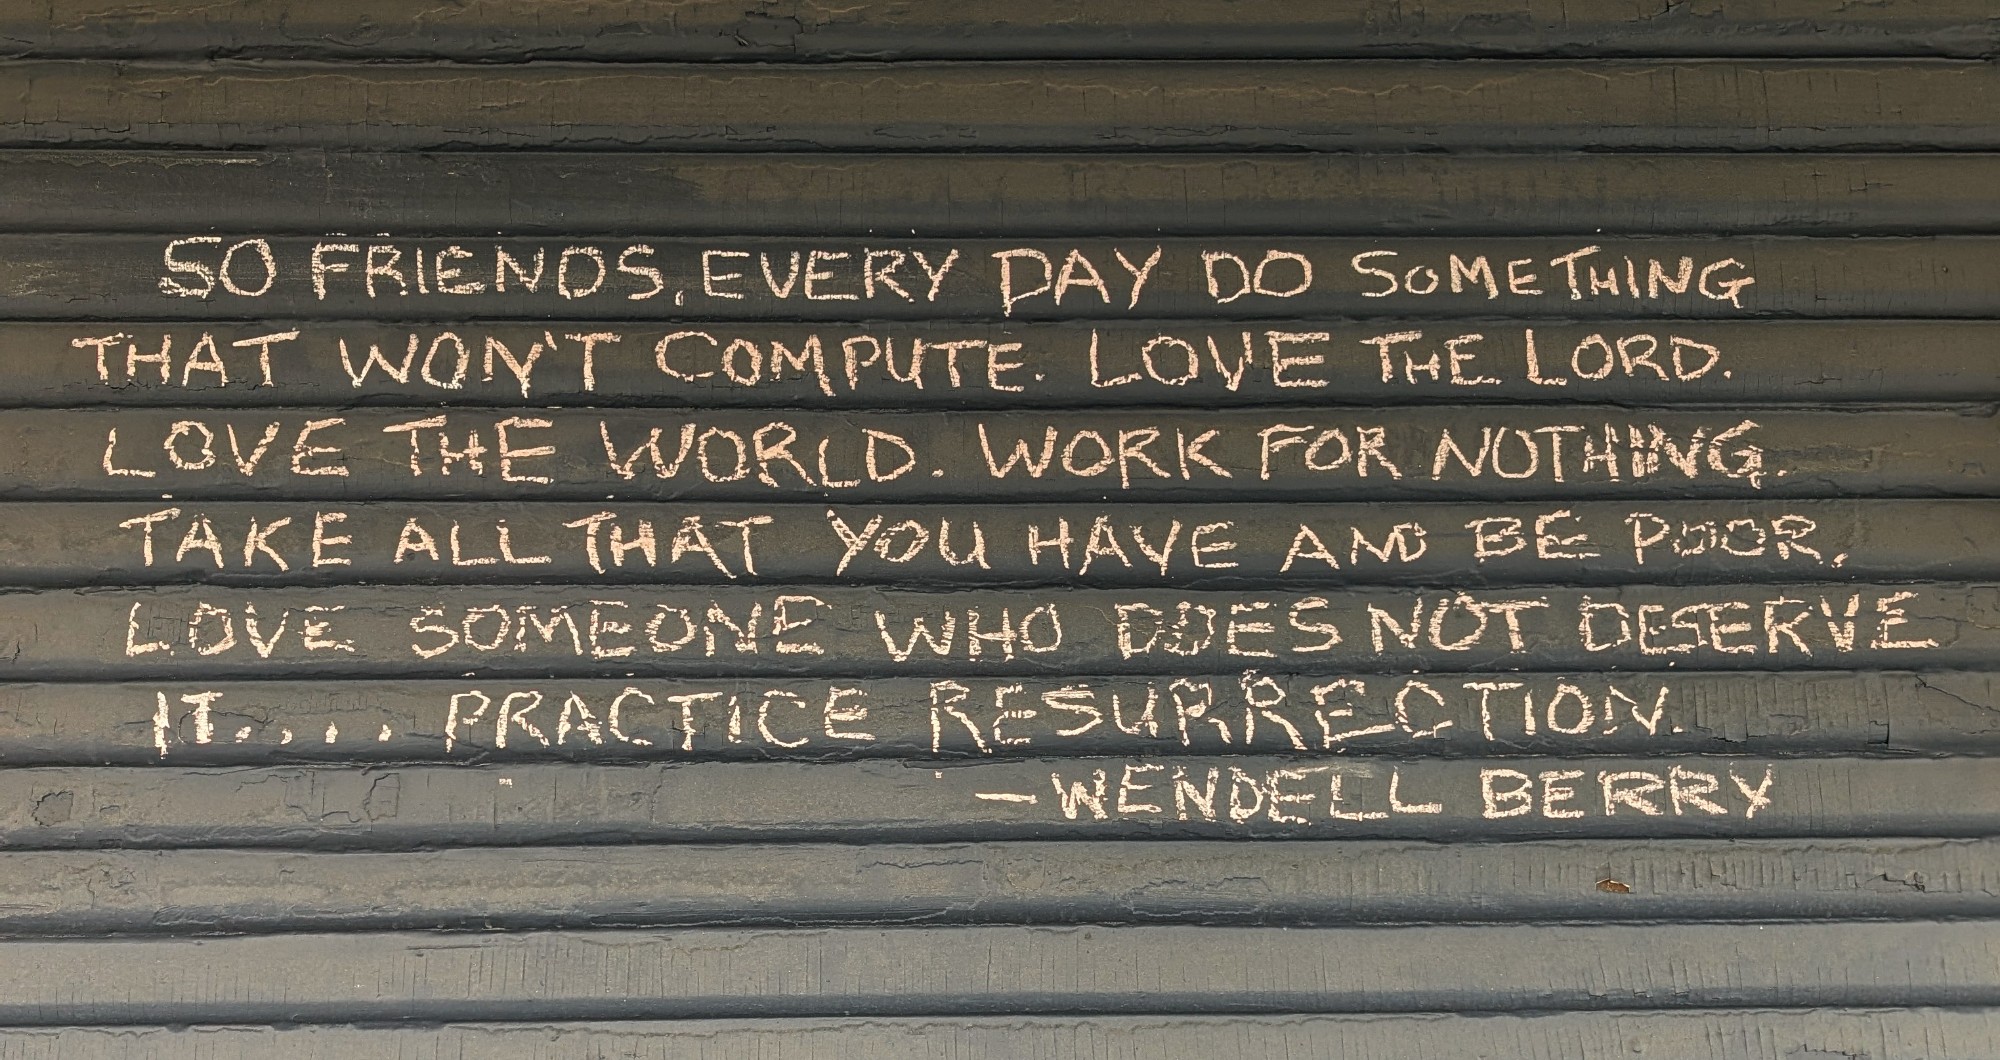 SO FRIENDS, EVERY DAY DO SOMETHING
THAT WON'T COMPUTE. LOVE THE LORD.
LOVE THE WORLD. WORK FOR NOTHING.
TAKE ALL THAT YOU HAVE AND BE POOR.
LOVE SOMEONE WHO DOES NOT DESERVE
IT.... PRACTICE RESURRECTION.
—WENDELL BERRY